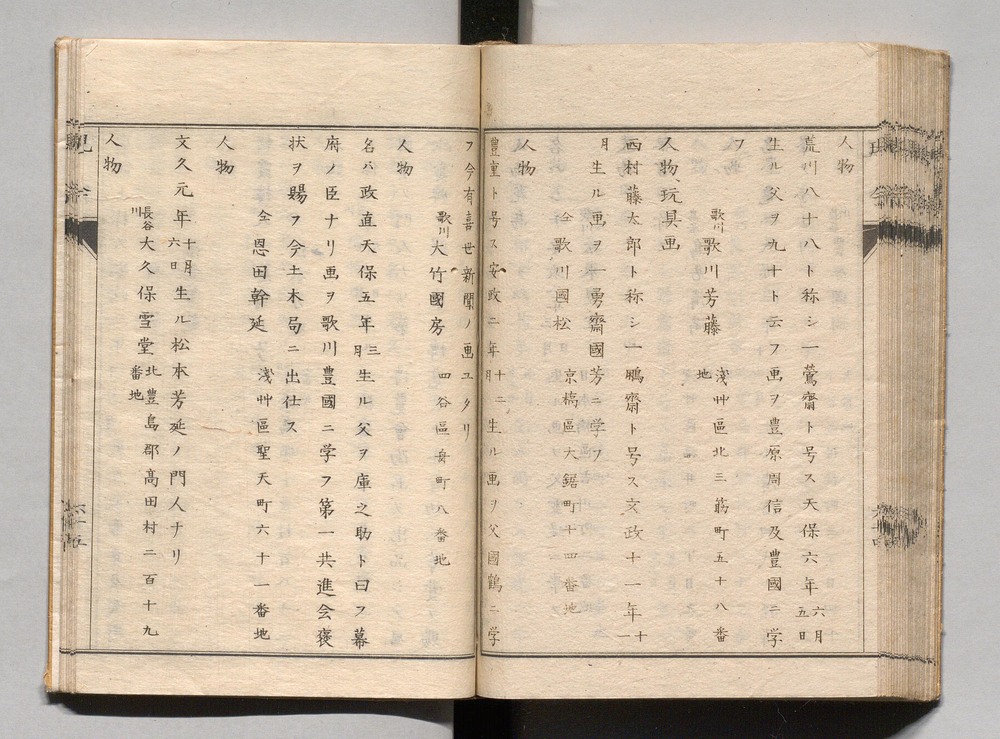 人物
荒川八十八ト称シ一鶯齋ト号ス天保六年六月五日
生ル父ヲ九十ト云フ画ヲ豊原周信及豊國ニ学
フ
歌川 歌川芳藤 浅艸區北三筋町五十八番地
人物、玩具画
西村藤太郎ト称シ一鵬齋ト号ス文政十一年十一
月生ル画ヲ一勇齋國芳ニ学フ
仝 歌川國松 京橋區大鋸町十四番地
人物
豊重ト号ス安政二年十二月生ル画ヲ父國鶴ニ学
フ今有喜世新聞ノ画工タリ
歌川 大竹國房 四谷區舟町八番地
人物
名ハ政直天保五年三月生ル父ヲ庫之助ト曰フ幕
府ノ臣ナリ画ヲ歌川豊國ニ学フ第一共進会褒
状ヲ賜フ今土木局ニ出仕ス
仝 恩田幹延 浅艸區聖天町六十一番地
人物
文久元年十月六日生ル松本芳延ノ門人ナリ
長谷川 大久保雪堂 北豊島郡高田村二百十九番地
人物